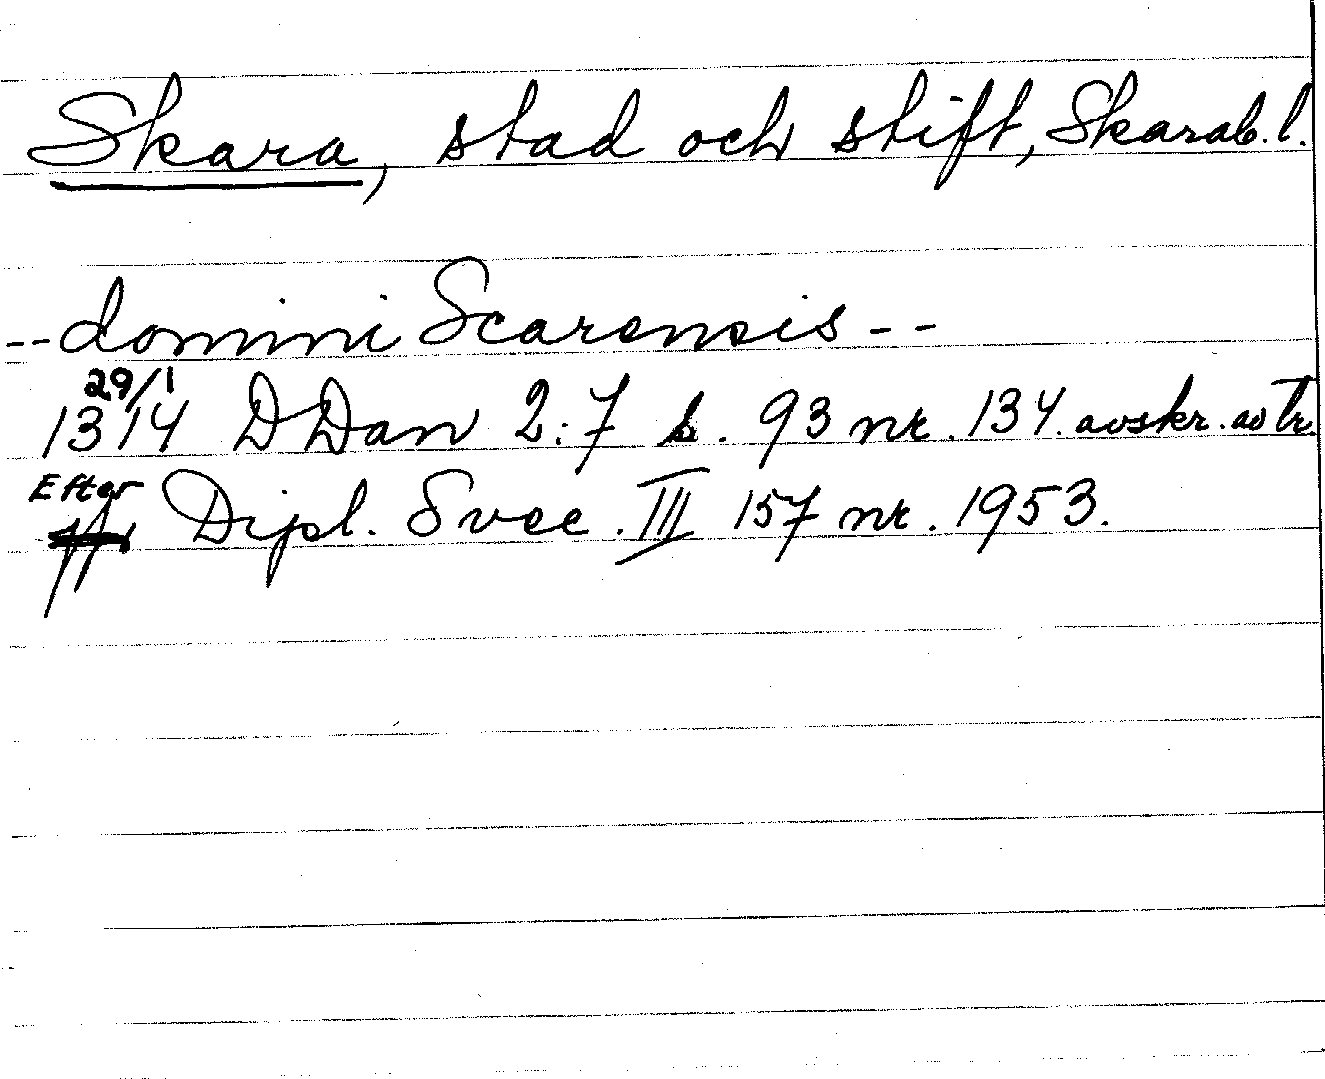 Skara, stad och stift, Skarab. l.
-- domini Scarensis --
29/1
1314 DDan 2:7 s. 93 nr. 134. avskr. av tr.
Efter Dipl. Svec. III 157 nr. 1953.